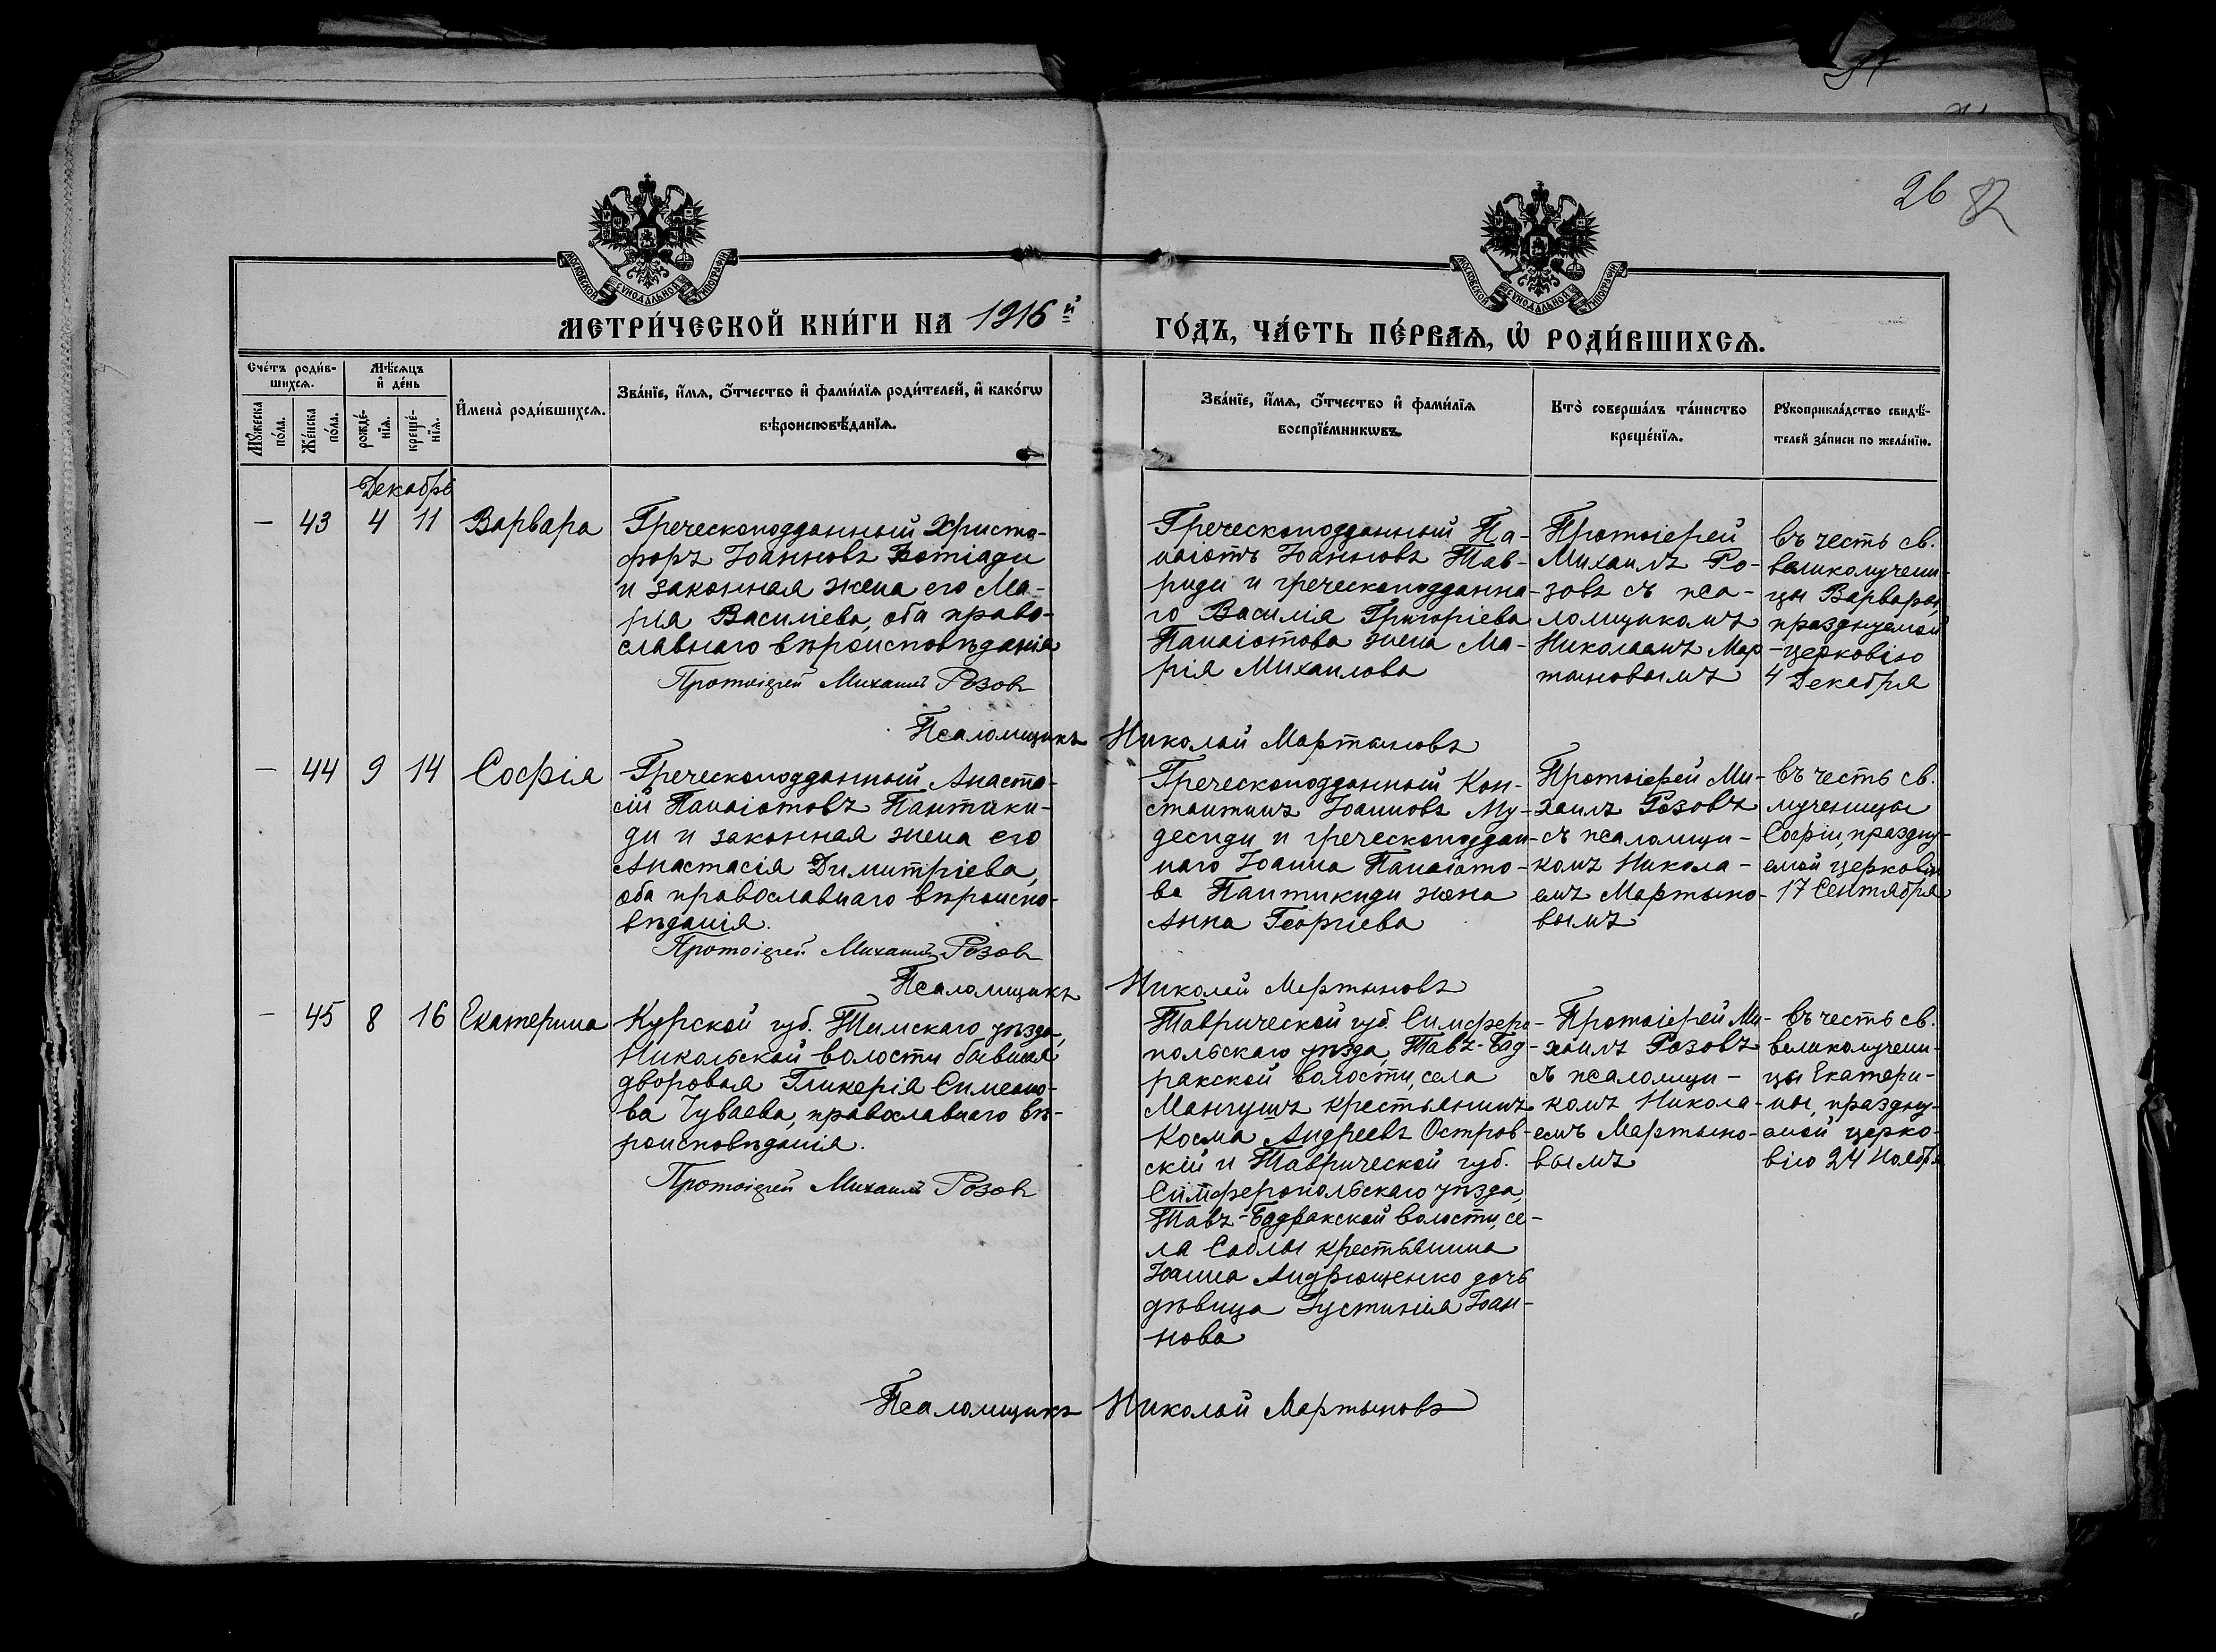 26 82
МОСКОВСКОЙ СѴНОДАЛЬНОЙ ТИПОГРАФІИ
МОСКОВСКОЙ СѴНОДАЛЬНОЙ ТИПОГРАФІИ
МЕТРИ́ЧЕСКОЙ КНИ́ГИ НА 1916й ГО́ДЪ, ЧА́СТЬ ПЕ́РВАѦ, Ѡ҆ РОДИ́ВШИХСѦ.
Сче́тъ роди́в-
шихсѧ.
Мꙋ́жеска
по́ла.
Же́нска
по́ла.
Мѣ́сѧцъ
и҆ де́нь
рожде́-
нїѧ.
креще́-
нїѧ.
И҆мена̀ роди́вшихсѧ.
Зва́нїе, и҆́мѧ, ѻ҆́тчество и҆ фами́лїѧ роди́телей, и҆ како́гѡ
вѣроисповѣ́данїѧ.
Зва́нїе, и҆́мѧ, ѻ҆́тчество и҆ фами́лїѧ
воспрїе́мникѡвъ.
Кто̀ соверша́лъ та́инство
креще́нїѧ.
Рꙋкоприкла́дство свидѣ́-
телей за́писи по жела́нїю.
Декабрь
— 43 4 11 Варвара
Греческоподданный Христо-
форъ Іоанновъ Фотіади
и законная жена его Ма-
рія Василіева, оба право-
славнаго вѣроисповѣданія
Протоіерей Михаилъ Розовъ
Греческоподданный Па-
наіотъ Іоанновъ Тав-
риди и греческоподданна-
го Василія Григоріева
Панаіотова жена Ма-
рія Михаилова
Протоіерей
Михаилъ Ро-
зовъ съ пса-
ломщикомъ
Николаемъ Мар
тыновымъ
въ честь св.
великомучени-
цы Варвары
празднуемой
церковію
4 Декабря
Псаломщикъ Николай Мартыновъ
— 44 9 14 Софія
Греческоподданный Анаста-
сій Панаіотовъ Пантики-
ди и законная жена его
Анастасія Димитріева,
оба православнаго вѣроиспо-
вѣданія.
Протоіерей Михаилъ Розовъ
Греческоподданный Кон-
стантинъ Іоанновъ Му-
десиди и греческоподдан-
наго Іоанна Панаіото-
ва Пантикиди жена
Анна Георгіева
Протоіерей Ми-
хаилъ Розовъ
съ псаломщи-
комъ Никола-
емъ Мартыно-
вымъ
въ честь св.
мученицы
Софіи, праздну-
емой церковію
17 Сентября
Псаломщикъ Николай Мартыновъ
— 45 8 16 Екатерина
Курской губ. Тимскаго уѣзда,
Никольской волости бывшая
дворовая Гликерія Симеоно-
ва Чуваева, православнаго вѣ-
роисповѣданія.
Протоіерей Михаилъ Розовъ
Таврической губ. Симферо-
польскаго уѣзда, Тавъ-Бад-
ракской волости, села
Мангушъ крестьянинъ
Косма Андреевъ Остров-
скій и Таврической губ.
Симферопольскаго уѣзда,
Тавъ-Бадракской волости, се-
ла Саблы крестьянина
Іоанна Андрющенко дочь
дѣвица Іустинія Іоан-
нова
Протоіерей Ми-
хаилъ Розовъ
съ псаломщи-
комъ Никола-
емъ Мартыно-
вымъ
въ честь св.
великомучени-
цы Екатери-
ны, праздну-
емой церко-
вію 24 Ноября
Псаломщикъ Николай Мартыновъ